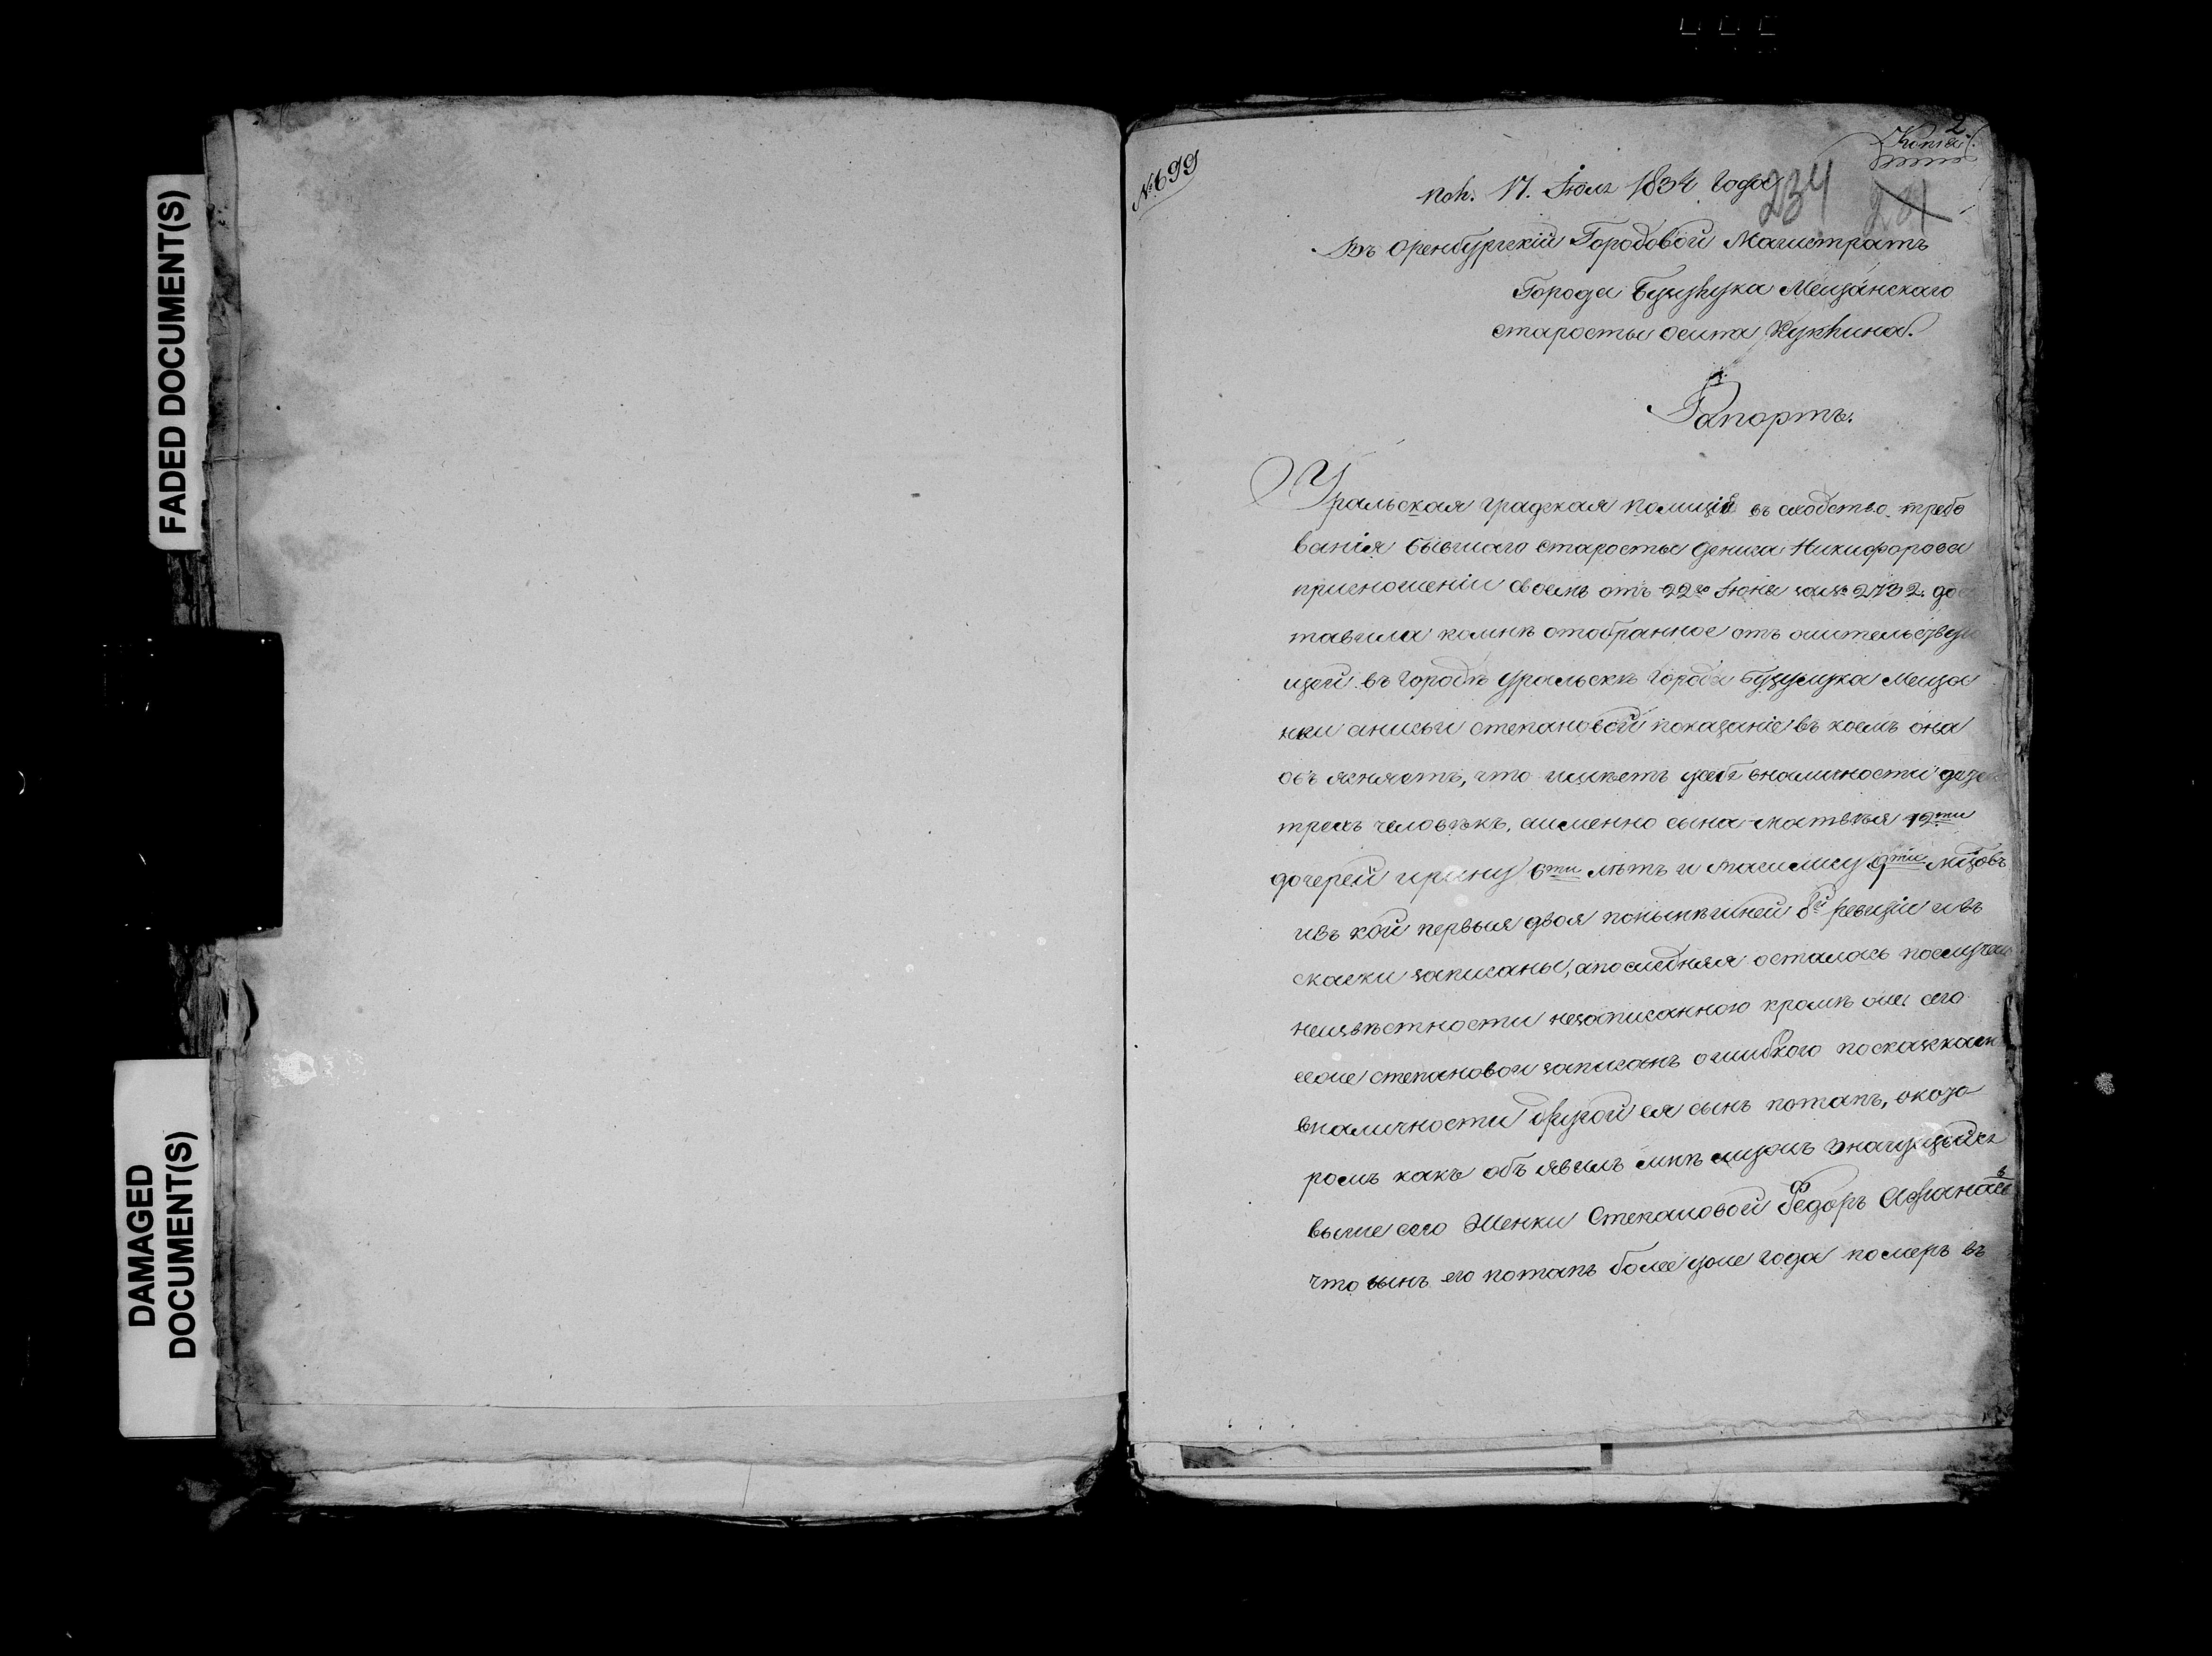 FADED DOCUMENT(S)
DAMAGED
DOCUMENT(S)
2
Копія
№ 699
пол. 17. Июля 1834 Года
234 231
Въ Оренбургскій Городовой Магистратъ
Города Бузулука Мещанскаго
старосты осипа
Рапортъ.
Уральская градская полиція въ сходство требо
ванія бывшаго старосты дениса Никифорова
приотношеніи своемъ отъ 22го Июня за № 2732. дос
тавила комнѣ отобранное отъ жительствую
щей въ городѣ уральскѣ города бузулука Меща
нки анисьи степановой показаніе въ коемъ она
объясняетъ, что имѣетъ усебя вналичности детей
трехъ человѣкъ, аименно сына матвѣя 12ти
дочерей ирину 6ти лѣтъ и василису 9ти мѣцовъ
изъ кои первыя двоя понынѣшней 8й ревизіи ивъ
скаски записаны, апоследняя осталась послучаю
неизвѣстности незаписанною кромѣ же сего
степановои записанъ ошибкою поскаскам
вналичности другой ея сынъ потапъ, окото
ромъ какъ объявилъ мнѣ мужъ значущейся
выше сего Женки Степановой Федоръ Афанасьевъ
что сынъ его потапъ более уже года померъ въ